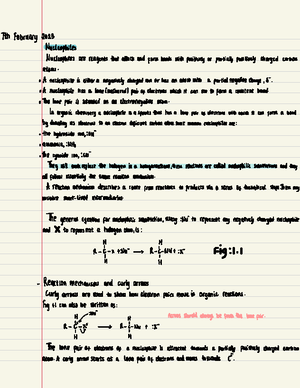 7th February 2023
Nucleophiles
Nucleophiles are reagents that attack and form bonds with positively or partially positively charged carbon
atoms.
• A nucleophile is either a negatively charged ion or has an atom with a partial negative charge, δ⁻.
• A nucleophile has a lone (unshared) pair of electrons which it can use to form a covalent bond
• The lone pair is situated on an electronegative atom.
In organic chemistry a nucleophile is a species that has a lone pair of electrons with which it can form a bond
by donating its electrons to an electron deficient carbon atom. Some common nucleophiles are:
• the hydroxide ion, :OH⁻
• ammonia, :NH₃
• the cyanide ion, :CN⁻
They will each replace the halogen in a halogenoalkane, these reactions are called nucleophilic substitutions and they
all follow essentially the same reaction mechanism.
A reaction mechanism describes a route from reactants to products via a series of theoretical steps. These may
involve short-lived intermediates
The general equation for nucleophilic substitution, using :Nu⁻ to represent any negatively charged nucleophile
and X to represent a halogen atom, is:
H H
R-C-X + :Nu⁻ → R-C-Nu + :X⁻
H H
Fig:1.1
- Reaction mechanisms and curly arrows
Curly arrows are used to show how electron pairs move in organic reactions.
Fig 1.1 can also be written as:
Arrows should always be from the lone pair.
H :Nu⁻ H
R-C-X → R-C-Nu + :X⁻
H H
The lone pair of electrons of a nucleophile is attracted towards a partially positively charged carbon
atom. A curly arrow starts at a lone pair of electrons and moves towards C